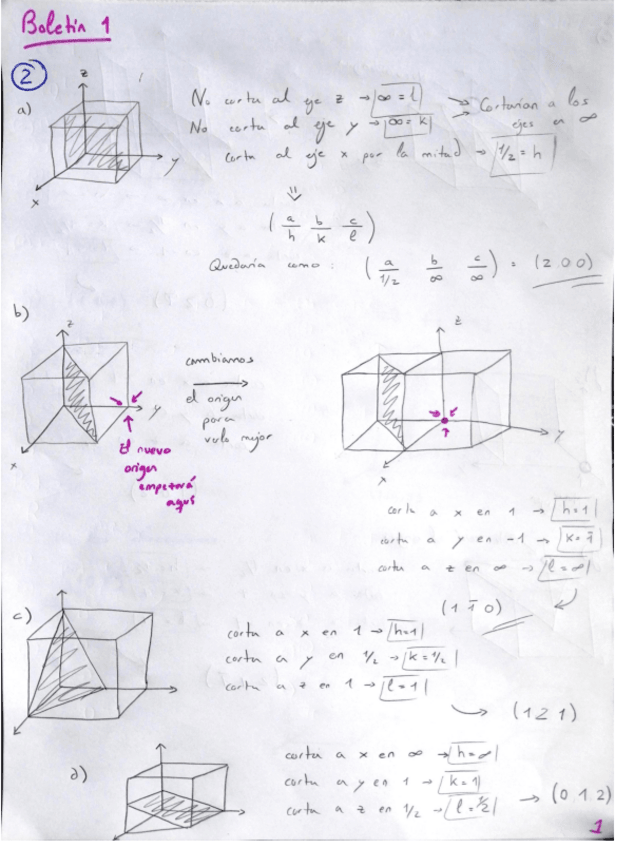 Boletín 1
2
a)
z
y
x
No corta al eje z → ∞ = l
No corta al eje y → ∞ = k
Cortarían a los ejes en ∞
corta al eje x por la mitad → 1/2 = h
⇓
( a/h b/k c/l )
Quedaría como: ( a/1/2 b/∞ c/∞ ) = (2 0 0)
b)
z
y
x
El nuevo
origen
empezará
aquí
cambiamos
el origen
para
verlo mejor
z
y
x
corta a x en 1 → h=1
corta a y en -1 → k=1̄
corta a z en ∞ → l=∞
(1 1̄ 0)
c)
corta a x en 1 → h=1
corta a y en 1/2 → k=1/2
corta a z en 1 → l=1
→ (1 2 1)
d)
corta a x en ∞ → h=∞
corta a y en 1 → k=1
corta a z en 1/2 → l=1/2
→ (0 1 2)
1